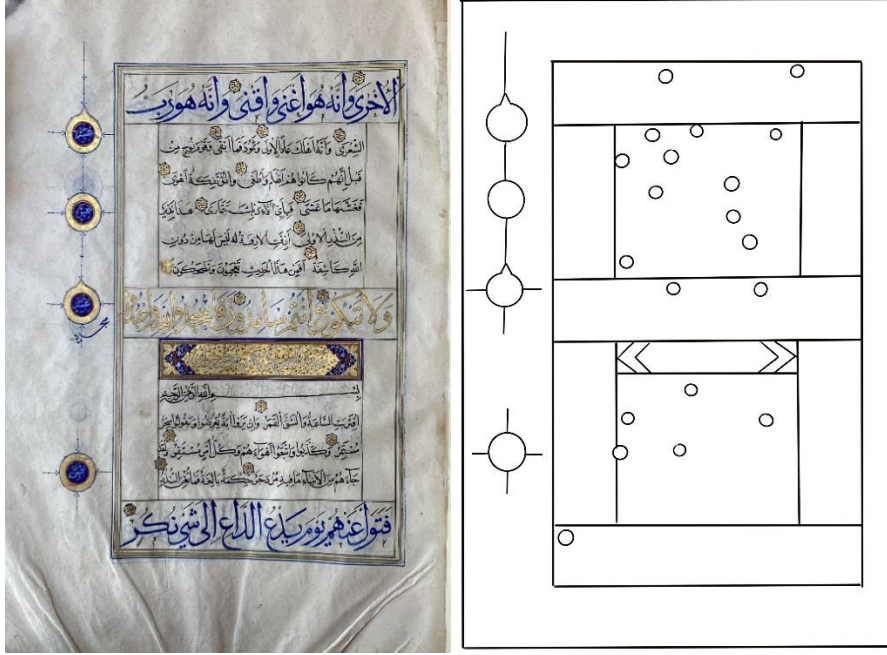 الاخرى وانه هو اغنى واقنى وانه هو رب
الشعرى وانه اهلك عادا الاولى وثمود فما ابقى وقوم نوح من
قبل انهم كانوا هم اظلم واطغى والمؤتفكة اهوى
فغشيها ما غشى فبأي آلاء ربك تتمارى هذا نذير
من النذر الاولى ازفت الازفة ليس لها من دون
الله كاشفة افمن هذا الحديث تعجبون وتضحكون
ولا تبكون وانتم سامدون فاسجدوا لله واعبدوا
سجدة
بسم الله الرحمن الرحيم
اقتربت الساعة وانشق القمر وان يروا آية يعرضوا ويقولوا سحر
مستمر وكذبوا واتبعوا اهواءهم وكل امر مستقر ولقد
جاءهم من الانباء ما فيه مزدجر حكمة بالغة فما تغن النذر
فتول عنهم يوم يدع الداع الى شيء نكر